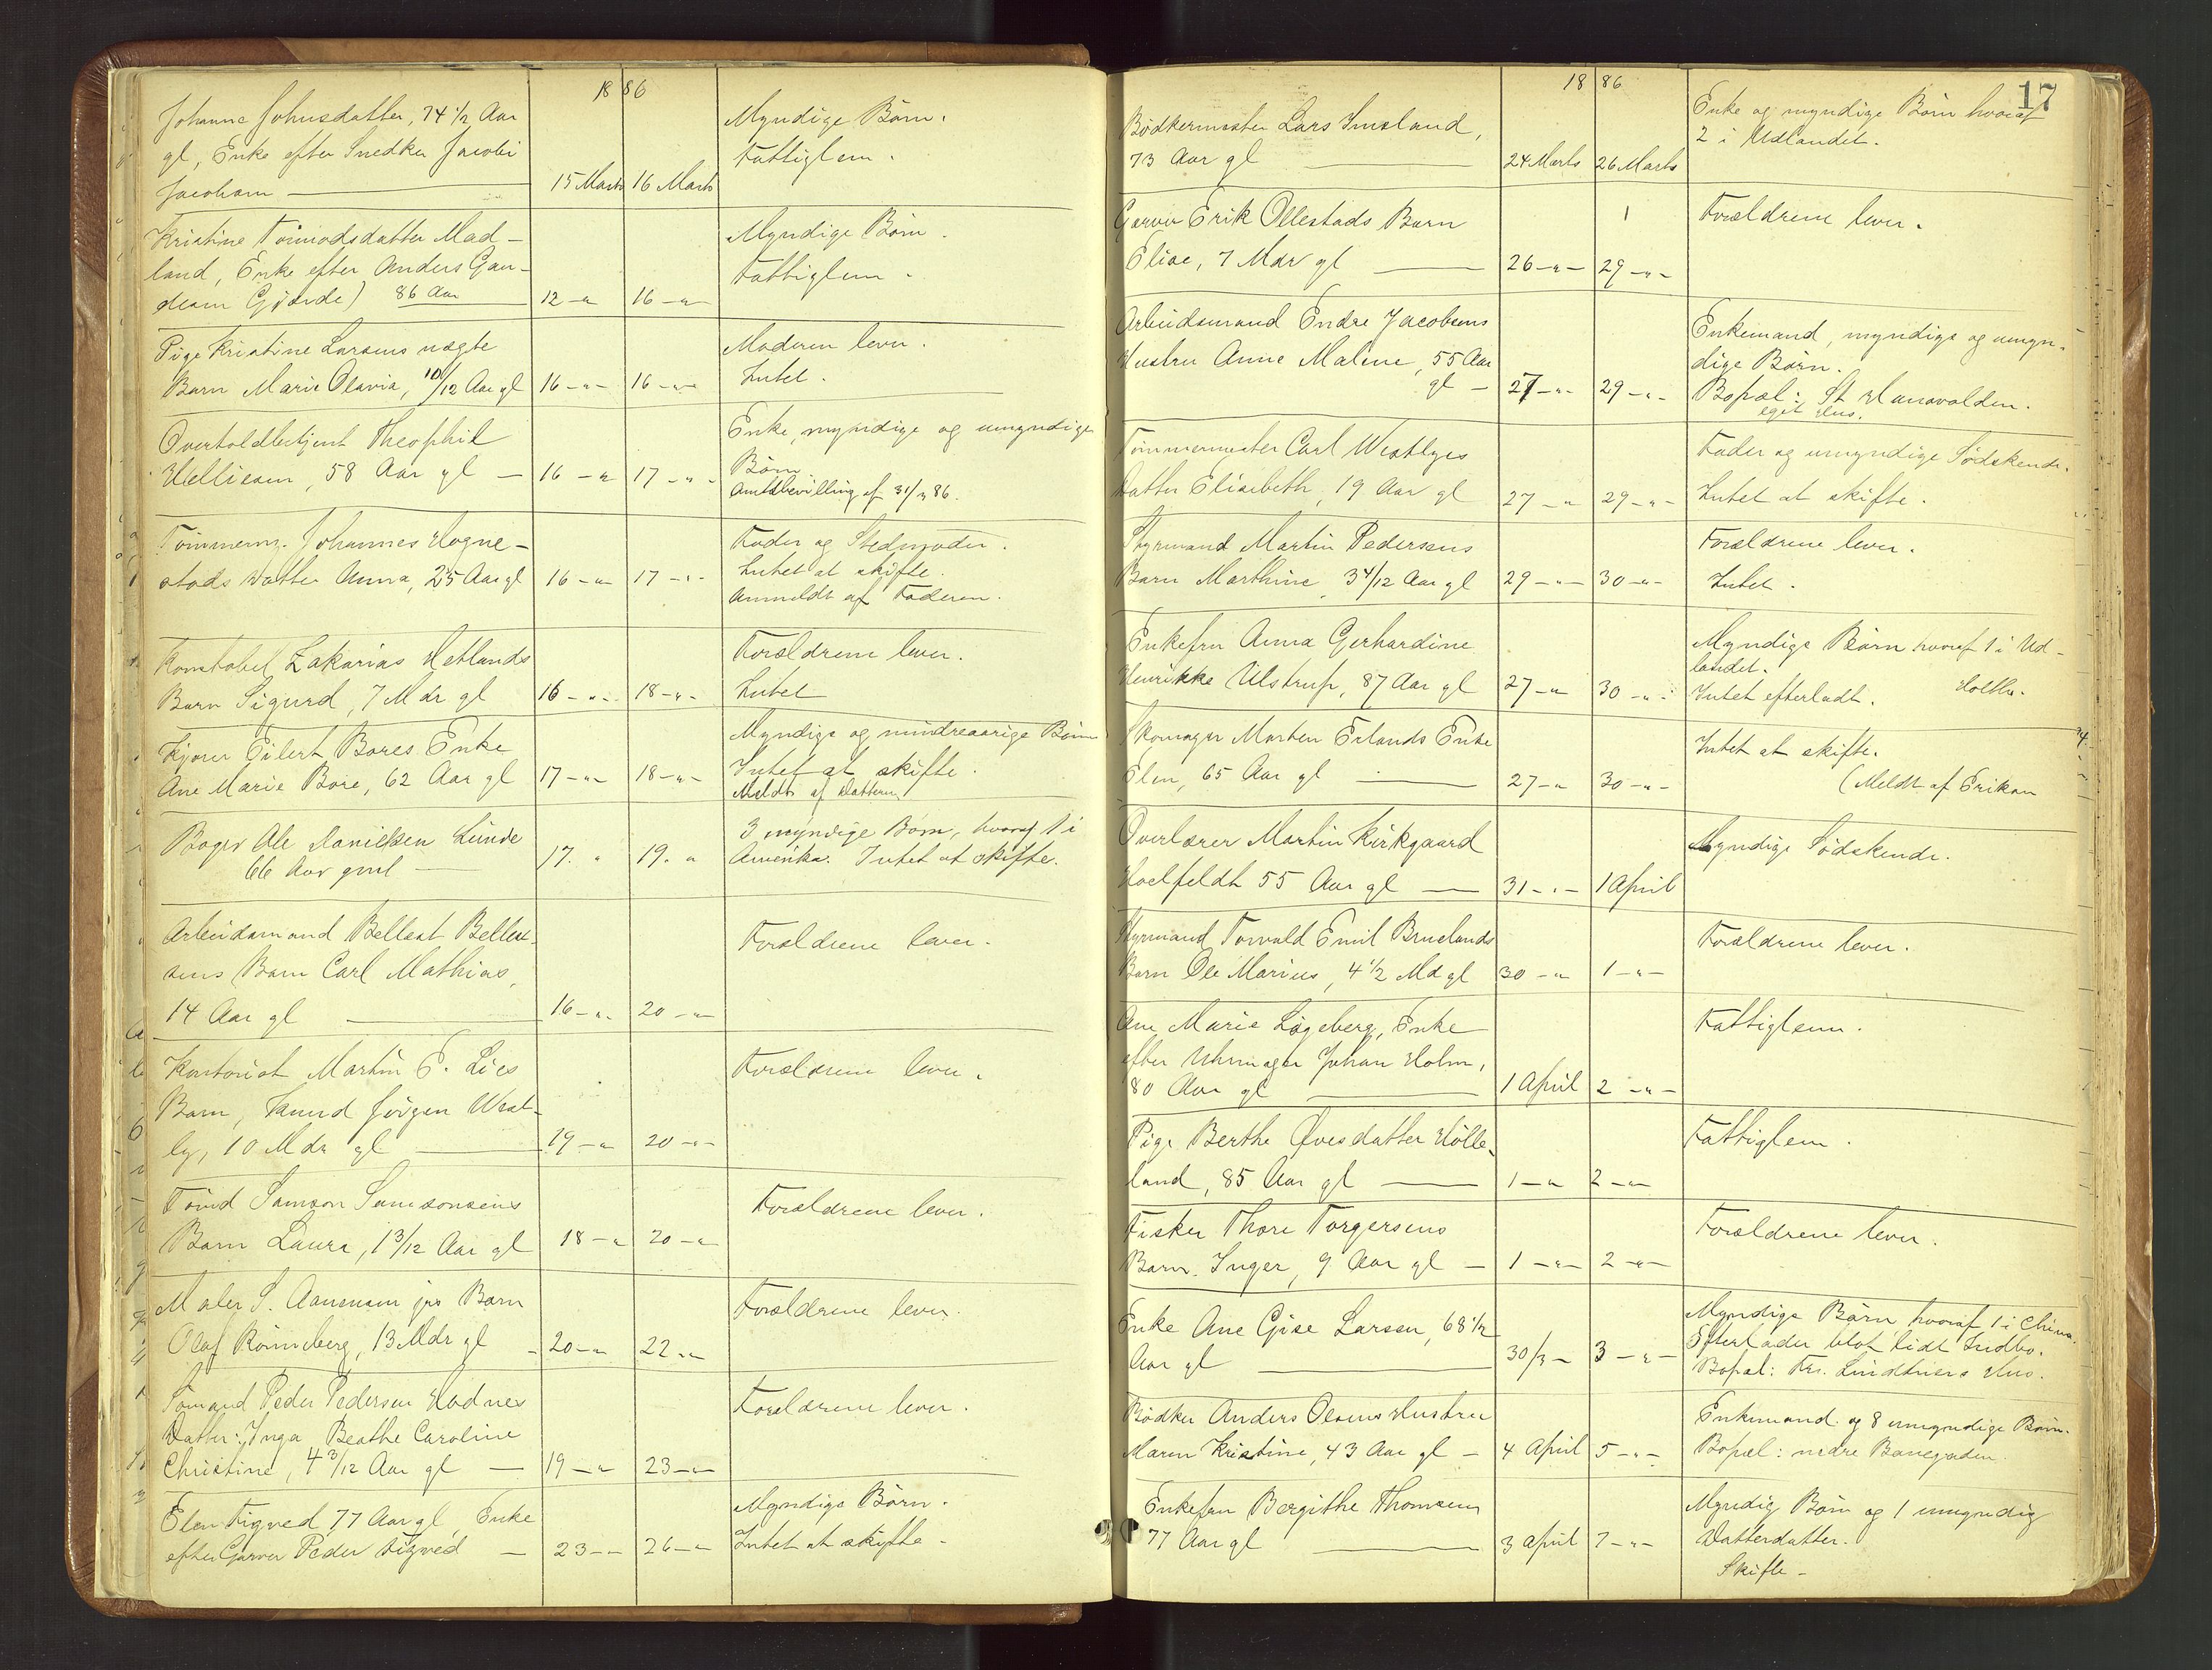 1886
Johanne Johnsdatter, 74 1/2 Aar
gl, Enke efter Snedker Jacobi
Jacobsen — 15 Marts 16 Marts
Myndige Børn.
Fattiglem.
Kristine Tormodsdatter Mad-
land, Enke efter Anders Gau-
desen Gjerde) 86 Aar 12 —"— 16 —"—
Myndige Børn.
Fattiglem.
Pige Kristine Larsens uægte
Barn Marie Olavia, 10/12 Aar gl 16 —"— 16 —"—
Moderen lever.
Intet.
Overtoldbetjent Theophil
Helliesen, 58 Aar gl — 16 —"— 17 —"—
Enke, myndige og umyndige
Børn.
Amtsbevilling af 31/3 86.
Tømmerm. Johannes Hogne-
stads Datter Anna, 25 Aar gl 16 —"— 17 —"—
Fader og Stedmoder.
Intet at skifte.
Anmeldt af Faderen.
Konstabel Zakarias Hetlands
Barn Sigurd, 7 Mdr gl 16 —"— 18 —"—
Forældrene lever.
Intet
Kjører Eilert Bores Enke
Ane Marie Bore, 62 Aar gl 17 —"— 18 —"—
Myndige og mindreaarige Børn
Intet at skifte.
Meldt af Datteren
Bager Ole Danielsen Lunde
66 Aar gml — 17. " 19. "
3 myndige Børn, hvoraf 1 i
Amerika. Intet at skifte.
Arbeidsmand Bellest Bellest-
sens Barn Carl Mathias,
14 Aar gl — 16 —"— 20 —"—
Forældrene lever.
Kontorist Martin E. Lies
Barn, Knud Jørgen West-
ly, 10 Mdr gl — 19 —"— 20 —"—
Forældrene lever.
Samson Samsonsens
Barn Laura, 1 3/12 Aar gl 18 —"— 20 —"—
Forældrene lever.
Maler S. Aanensen jrs Barn
Olaf Rønneberg, 13 Mdr gl — 20 —"— 22 —"—
Forældrene lever.
Sømand Peder Pedersen Hodnes
Datter: Inga Beathe Caroline
Christine, 4 3/12 Aar gl — 19 —"— 23 —"—
Forældrene lever.
Elen Tigved 77 Aar gl, Enke
efter Garver Peder Tigved — 23 —"— 26 —"—
Myndige Børn.
Intet at skifte.
17
1886
Bødkermester Lars Imsland,
73 Aar gl — 24 Marts 26 Marts
Enke og myndige Børn hvoraf
2 i Udlandet.
Garver Erik Ollestads Barn
Elise, 7 Mdr gl — 26 —"— 29 —"—
Forældrene lever.
Arbeidsmand Endre Jacobsens
Hustru Anne Malene, 55 Aar
gl — 27 —"— 29 —"—
Enkemand, myndige og umyn-
dige Børn.
Bopæl: St Hansvolden.
eget Hus.
Tømmermester Carl Westlyes
Datter Elisebeth, 19 Aar gl 27 —"— 29 —"—
Fader og umyndige Sødskende.
Intet at skifte.
Styrmand Martin Pedersens
Barn Marthine, 3 4/12 Aar gl 29 —"— 30 —"—
Forældrene lever.
Intet.
Enkefru Anna Gerhardine
Henrikke Ulstrup, 87 Aar gl 27 —"— 30 —"—
Myndige Børn hvoraf 1 i Ud-
landet.
Intet efterladt.
Skomager Morten Erlands Enke
Elen, 65 Aar gl — 27 —"— 30 —"—
Intet at skifte.
(Meldt af Eriksen
Overlærer Martin Kirkgaard
Hoelfeldt 55 Aar gl — 31 —"— 1 April
Myndige Sødskende.
Styrmand Torvald Emil Bruelands
Barn Ole Marius, 4 1/2 Md gl 30 —"— 1 —"—
Forældrene lever.
Ane Marie Løgeberg, Enke
efter Uhrmager Johan Holm,
80 Aar gl — 1 April 2 —"—
Fattiglem.
Pige Berthe Øvesdatter Hølle-
land, 85 Aar gl — 1 —"— 2 —"—
Fattiglem.
Fisker Thore Torgersens
Barn Inger, 9 Aar gl — 1 —"— 2 —"—
Forældrene lever.
Enke Ane Gise Larsen, 68 1/2
Aar gl — 30/3 — 3 —"—
Myndige Børn hvoraf 1 i China.
Efterlader blot lidt Indbo.
Bopæl: Fru Lindtners Hus.
Bødker Anders Olsens Hustru
Maren Kristine, 43 Aar gl — 4 April 5 —"—
Enkemand og 8 umyndige Børn.
Bopæl: nedre Banegaden.
Enkefru Bergithe Thomsen
77 Aar gl — 3 April 7 —"—
Myndig Børn og 1 umyndig
Datterdatter.
Skifte —